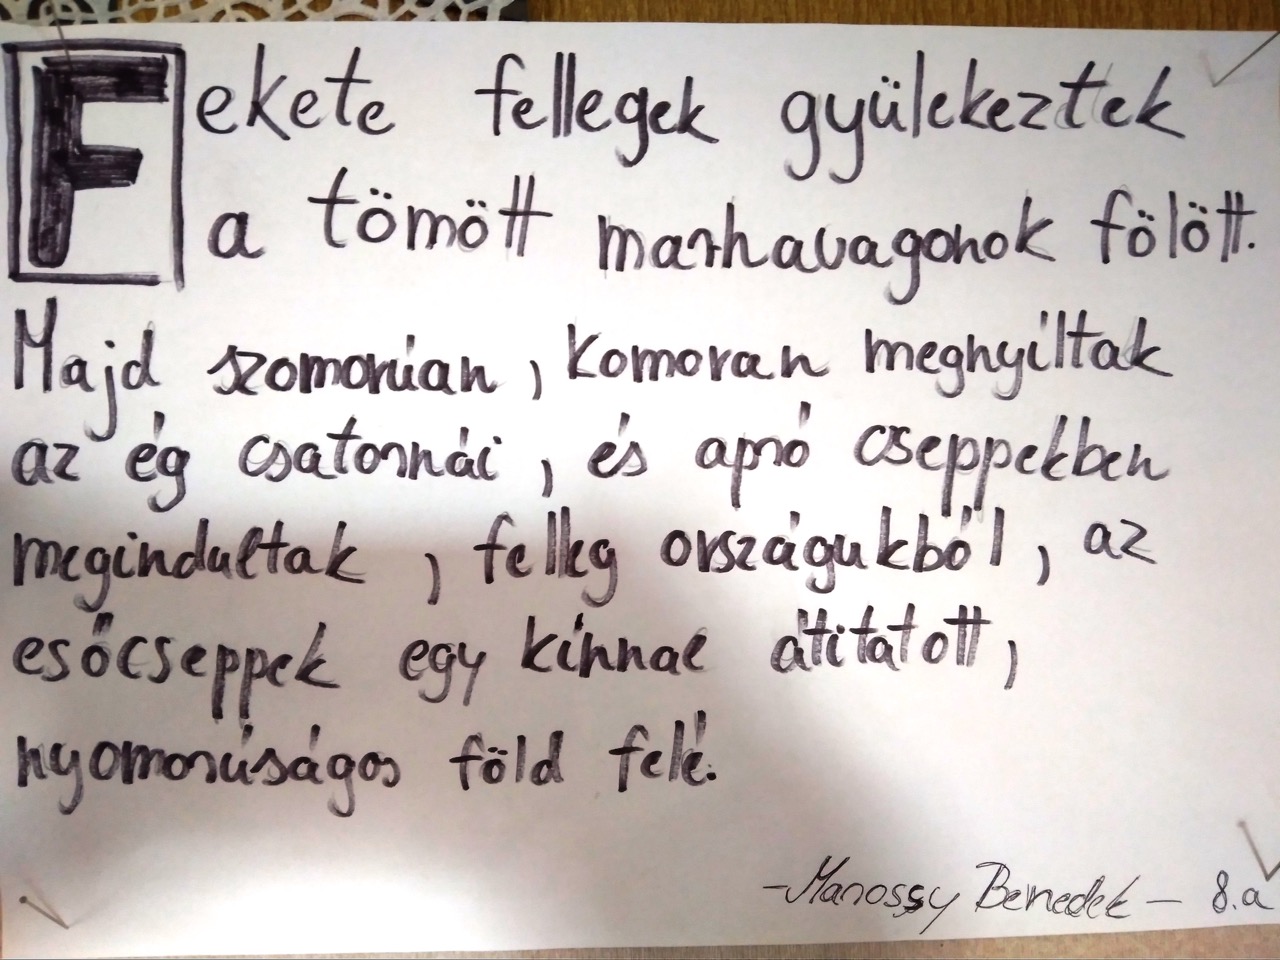 Fekete fellegek gyülekeztek
a tömött marhavagonok fölött.
Majd szomorúan, komoran megnyíltak
az ég csatornái, és apró cseppekben
megindultak, felleg országukból, az
esőcseppek egy kínnal átitatott,
nyomorúságos föld felé.
-Marossy Benedek- 8.a